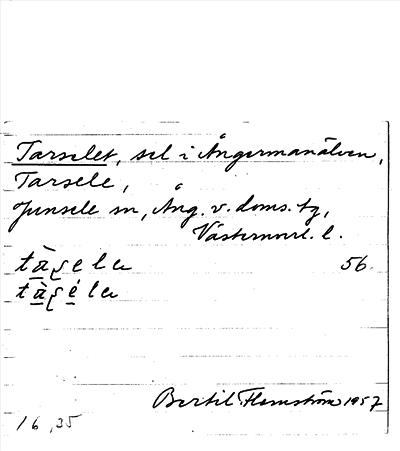 Tarselet, sel i Ångermanälven,
Tarsele,
Junsele sn, Ång. v. doms. tg,
Västernorrl. l.
56.
Bertil Flemström 1957
16,35